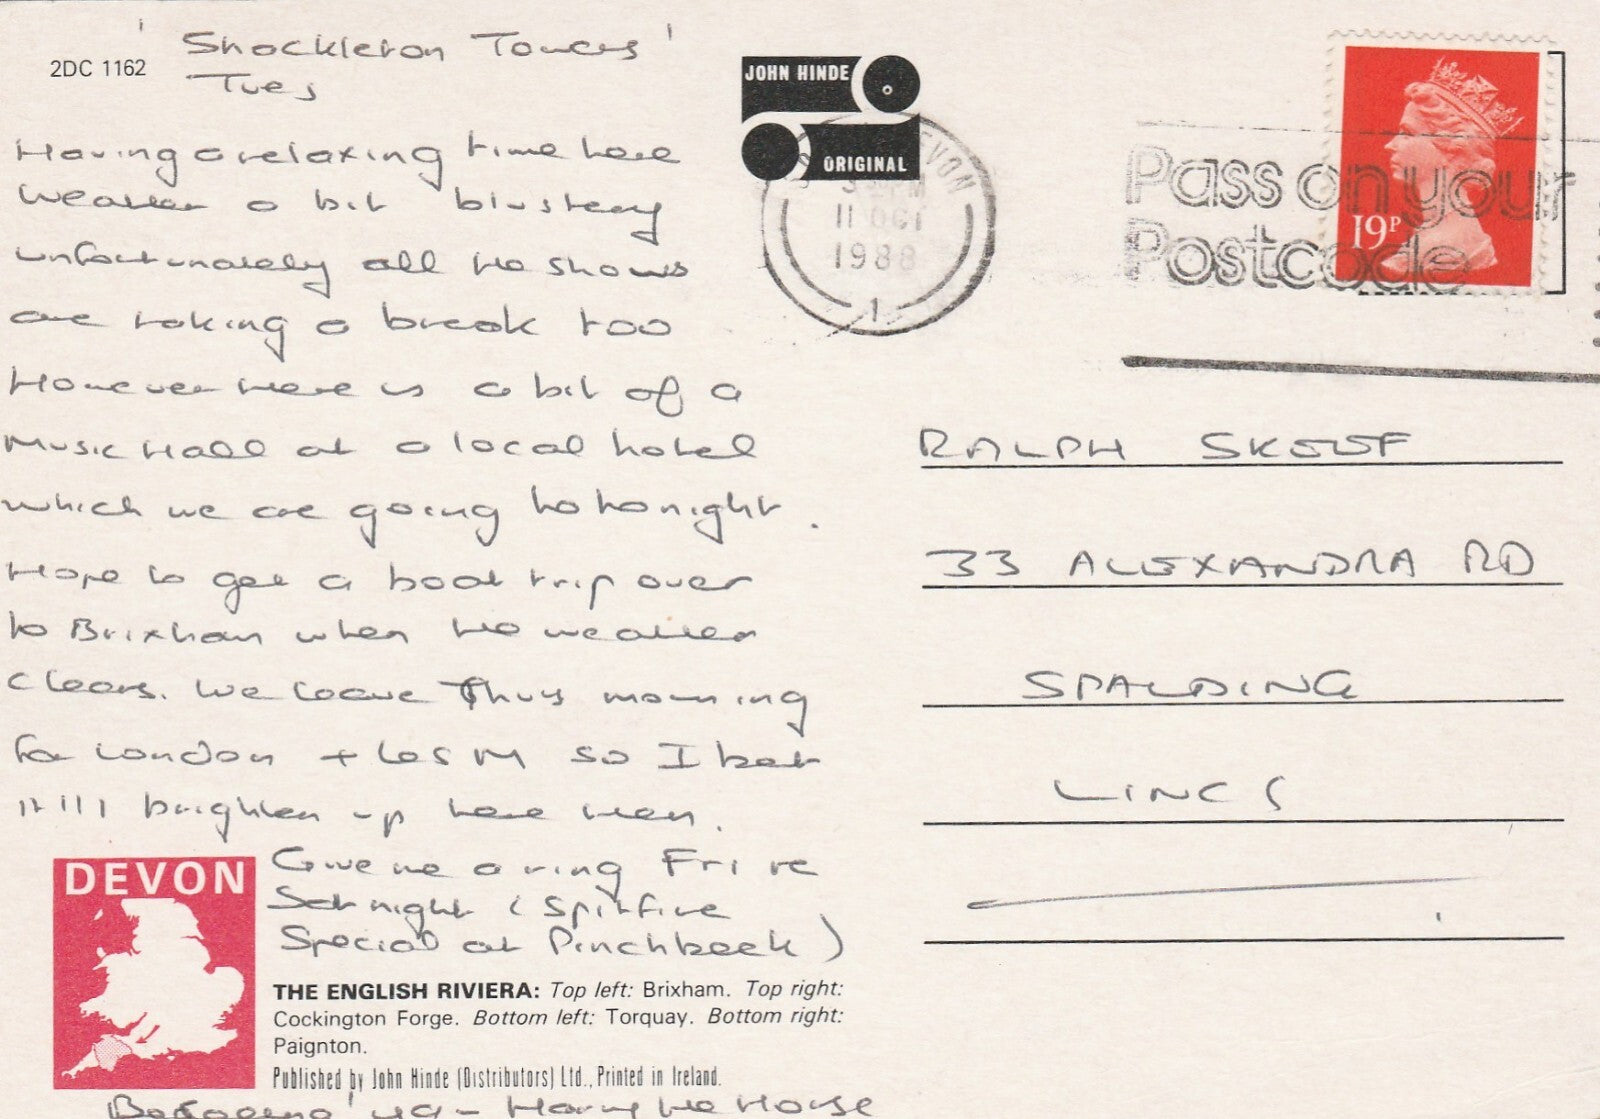 2DC 1162
'Shackleton Towers'
Tues
Having a relaxing time here
weather a bit blustery
unfortunately all the shows
are taking a break too
However there is a bit of a
Music Hall at a local hotel
which we are going to tonight.
Hope to get a boat trip over
to Brixham when the weather
clears. We leave Thurs morning
for London + Les M so I bet
it'll brighten up here then.
Give me a ring Fri re
Sat night (Spitfire
Special at Pinchbeck)
DEVON
THE ENGLISH RIVIERA: Top left: Brixham. Top right:
Cockington Forge. Bottom left: Torquay. Bottom right:
Paignton.
Published by John Hinde (Distributors) Ltd., Printed in Ireland.
Harry the Horse
JOHN HINDE
ORIGINAL
DEVON
PM
11 OCT
1988
1
Pass on your
Postcode
19P
RALPH SKEEF
33 ALEXANDRA RD
SPALDING
LINCS